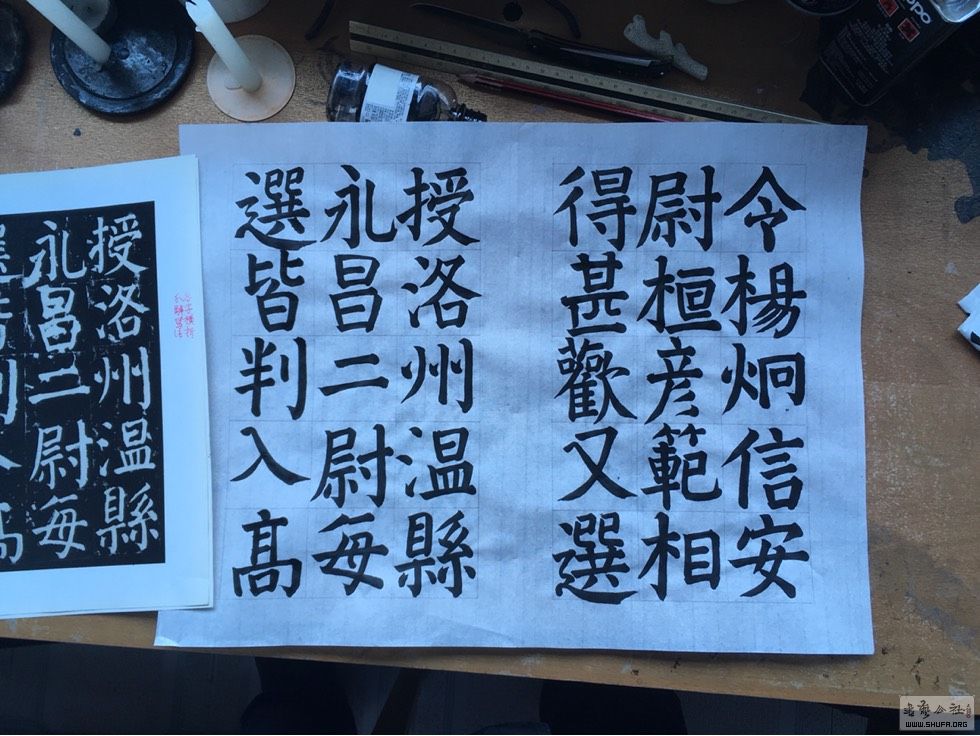 令楊炯信安
尉桓彦範相
得甚歡又選
授洛州温縣
永昌二尉每
選皆判入髙
授洛州温縣
永昌二尉每
書藝公社
WWW.SHUFA.ORG